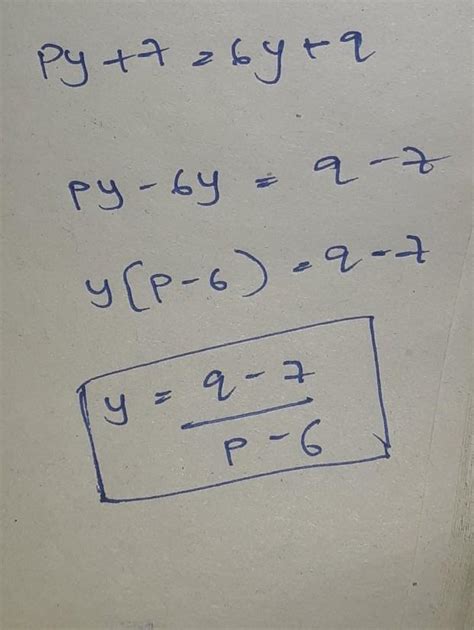 py + 7 = 6y + q
py - 6y = q - 7
y(p - 6) = q - 7
y = q - 7
p - 6